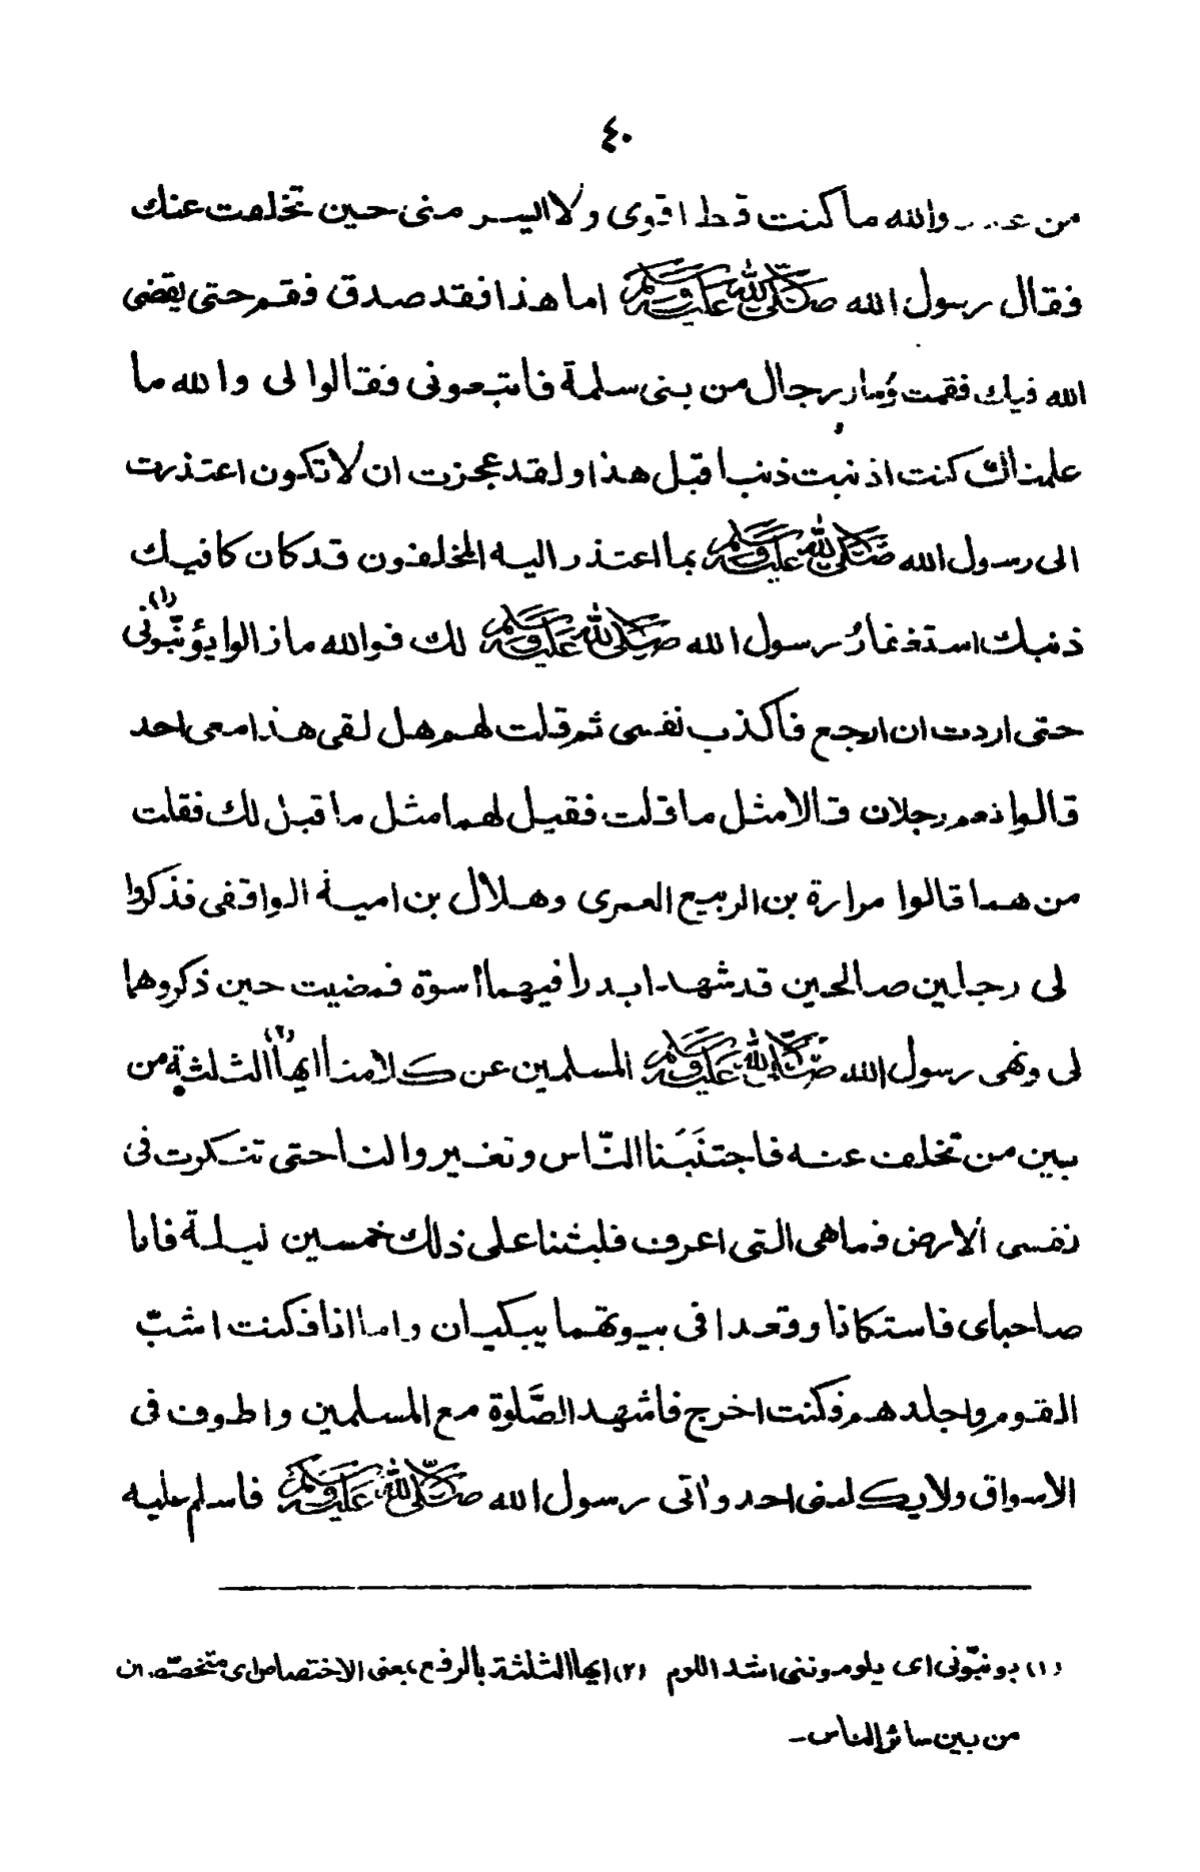 ٤٠
من عذر والله ما كنت قط اقوى ولا ايسر منى حين تخلفت عنك
فقال رسول الله صَلَّى اللهُ عَلَيْهِ وَسَلَّم اما هذا فقد صدق فقم حتى يقضى
الله فيك فقمت وُسار رجال من بنى سلمة فاتبعونى فقالوا لى والله ما
علمناك كنت اذنبت ذنبا قبل هذا ولقد عجزت ان لا تكون اعتذرت
الى رسول الله صَلَّى اللهُ عَلَيْهِ وَسَلَّم بما اعتذر اليه المخلفون قد كان كافيك
ذنبك استغفارُ رسول الله صَلَّى اللهُ عَلَيْهِ وَسَلَّم لك فوالله ما زالوا يؤنّبونى (١)
حتى اردت ان ارجع فاكذب نفسى ثم قلت لهم هل لقى هذا معى احد
قالوا نعم رجلان قالا مثل ما قلت فقيل لهما مثل ما قيل لك فقلت
من هما قالوا مرارة بن الربيع العمرى وهلال بن امية الواقفى فذكروا
لى رجلين صالحين قد شهدا بدرا فيهما اسوة فمضيت حين ذكروهما
لى ونهى رسول الله صَلَّى اللهُ عَلَيْهِ وَسَلَّم المسلمين عن كلامنا ايها (٢) الثلثة من
بين من تخلف عنه فاجتنَبَنا النّاس وتغيروا لنا حتى تنكرت فى
نفسى الارض فماهى التى اعرف فلبثنا على ذلك خمسين ليلة فاما
صاحباى فاستكانا وقعدا فى بيوتهما يبكيان واما انا فكنت اشبّ
القوم واجلدهم فكنت اخرج فاشهد الصَّلوة مع المسلمين واطوف فى
الاسواق ولا يكلمنى احد واٰتى رسول الله صَلَّى اللهُ عَلَيْهِ وَسَلَّم فاسلم عليه
(١) يونبّونى اى يلوموننى اشد اللوم (٢) ايها الثلثة بالرفع بمعنى الاختصاص اى متخصّصين
من بين سائر الناس۔